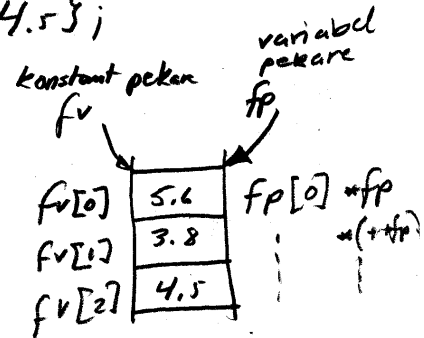 4.5};
variabel
pekare
konstant pekare
fv fp
fv[0] 5.6 fp[0] *fp
fv[1] 3.8 *(++fp)
fv[2] 4.5